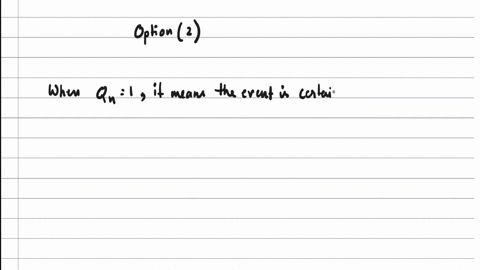 Option (2)
When Qn = 1, it means the event is certai